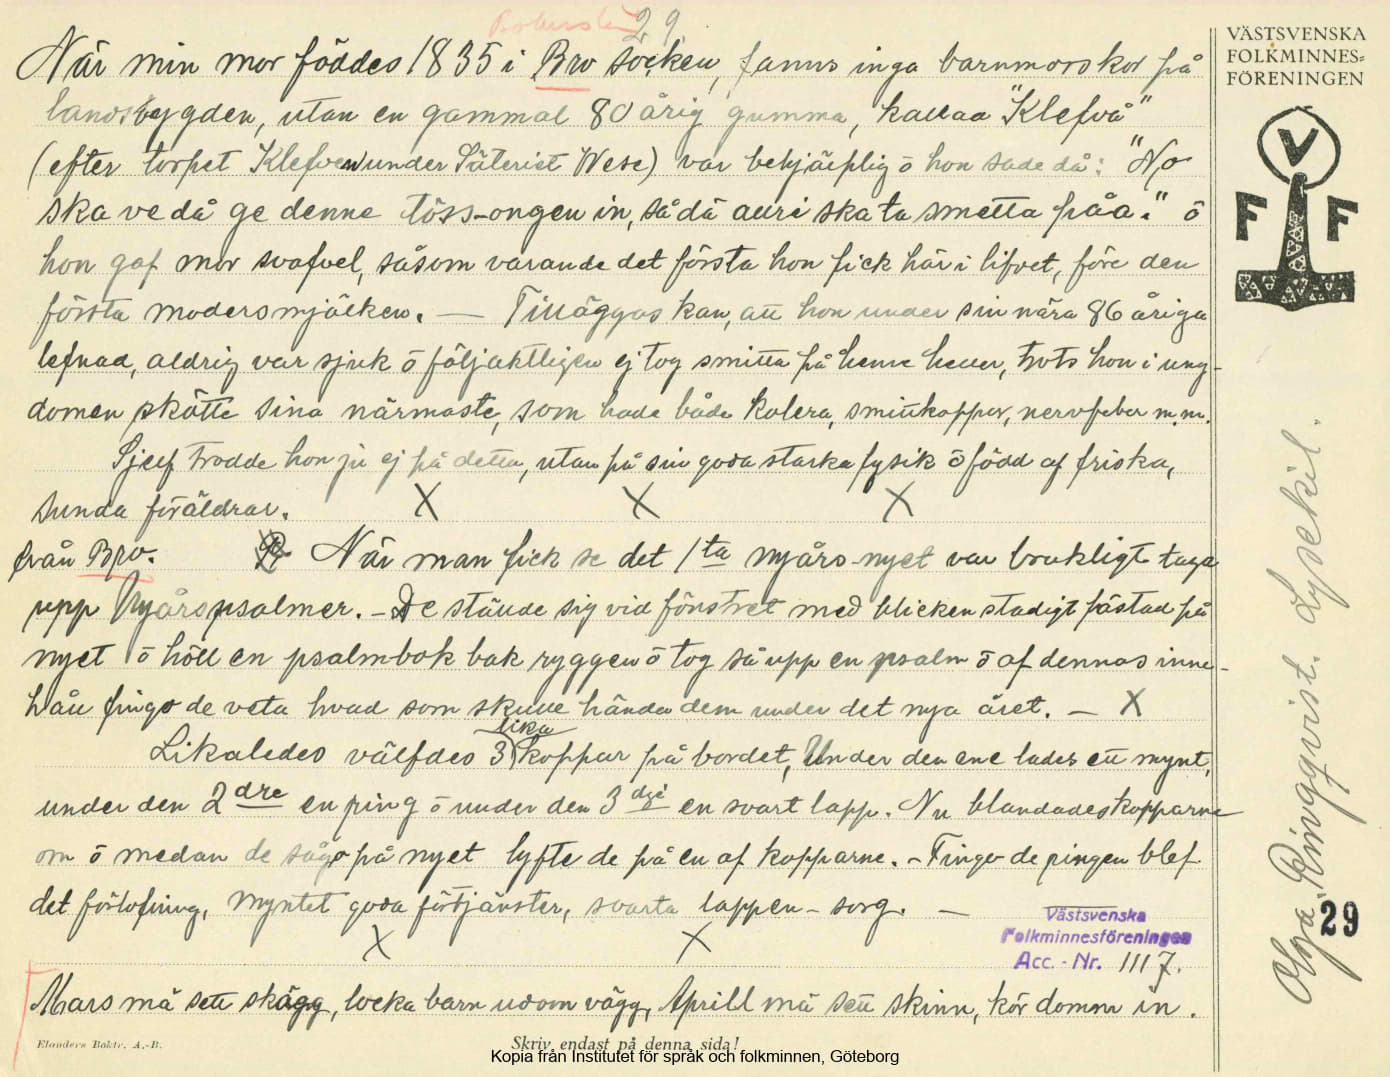 29
När min mor föddes 1835 i Bro socken, fanns inga barnmorskor på
landsbygden, utan en gammal 80 årig gumma, kallad "Klefvå"
(efter torpet Klefven under Säteriet Wese) var behjälplig ō hon sade då: "No
ska ve då ge denne töss-ongen in, så då auri ska ta smetta påa." ō
hon gaf mor svafvel, såsom varande det första hon fick här i lifvet, före den
första modersmjölken. — Tilläggas kan, att hon under sin nära 86 åriga
lefnad, aldrig var sjuk ō följaktligen ej tog smitta på henne heller, trots hon i ung-
domen skötte sina närmaste, som hade både kolera, smittkoppor, nervfeber m.m.
Sjelf trodde hon ju ej på detta, utan på sin goda starka fysik ō född af friska,
sunda föräldrar. X X X
från Bro. När man fick se det 1ta nyårs-nyet var brukligt taga
upp Nyårspsalmer. – De ställde sig vid fönstret med blicken stadigt fästad på
nyet ō höll en psalmbok bak ryggen ō tog så upp en psalm ō af dennas inne-
håll fingo de veta hvad som skulle hända dem under det nya året. – X
Likaledes välfdes 3 lika koppar på bordet, Under den ene lades ett mynt,
under den 2dre en ring ō under den 3dje en svart lapp. Nu blandades kopparne
om ō medan de sågo på nyet lyfte de på en af kopparne. – Fingo de ringen blef
det förlofning, Myntet goda förtjänster, svarta lappen – sorg. —
X X
Mars må sett skägg, locka barn udom vägg, Aprill må sett skinn, kör domm in.
VÄSTSVENSKA
FOLKMINNES-
FÖRENINGEN
V
F F
Olga Ringqvist. Lysekil.
29
Västsvenska
Folkminnesföreningen
Acc. - Nr. 1117.
Elanders Boktr. A.-B.
Skriv endast på denna sida!
Kopia från Institutet för språk och folkminnen, Göteborg